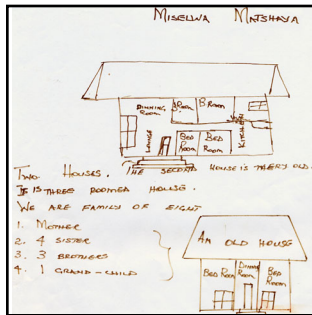 MISELWA MATSHAYA
DINNING ROOM
B.ROOM
LOUNGE
BED ROOM
BED ROOM
KITCHEN
TWO HOUSES. THE SECOND HOUSE IS VERY OLD.
IT IS THREE ROOMED HOUSE.
WE ARE FAMILY OF EIGHT
1. MOTHER
2. 4 SISTER
3. 3 BROTHERS
4. 1 GRAND-CHILD
AN OLD HOUSE
BED ROOM
ROOM
BED ROOM